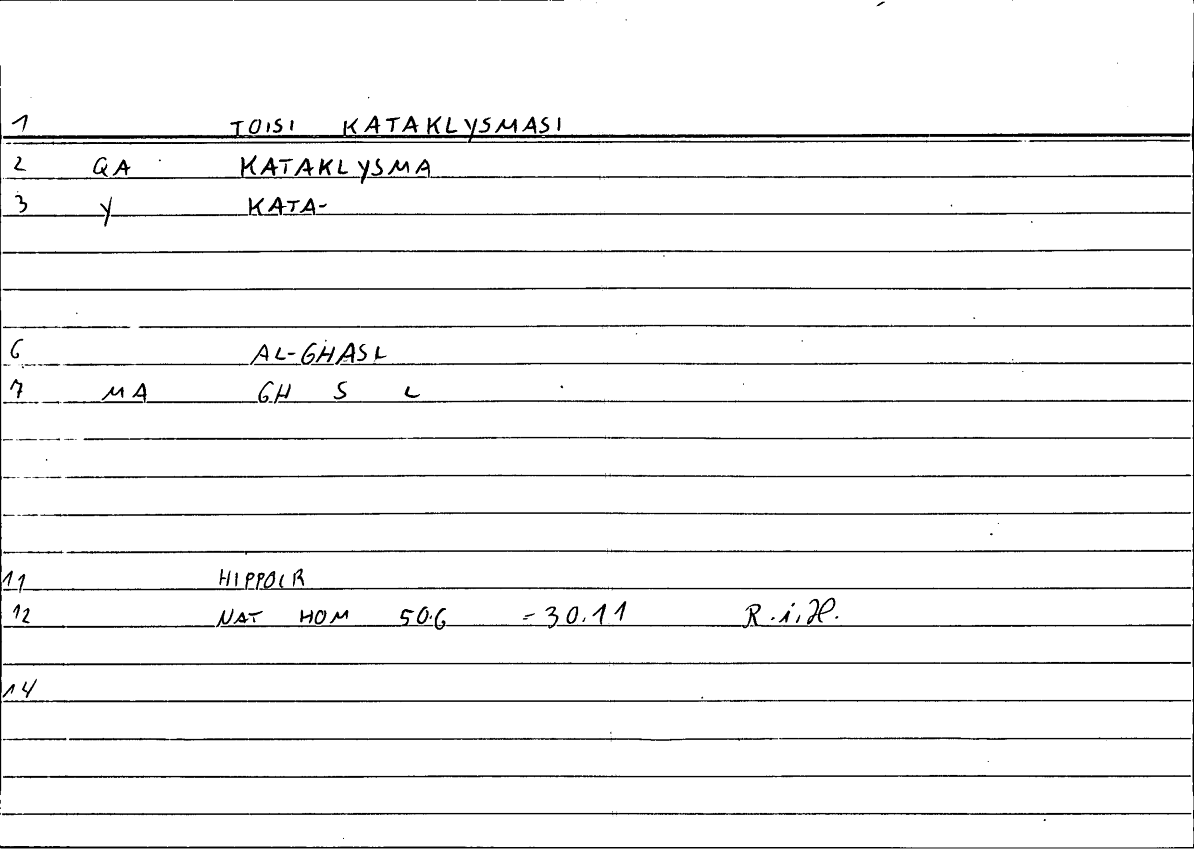 1 TOISI KATAKLYSMASI
2 QA KATAKLYSMA
3 Y KATA-
6 AL-GHASL
7 MA GH S L
11 HIPPOCR
12 NAT HOM 50.6 = 30.11 R.i.H.
14